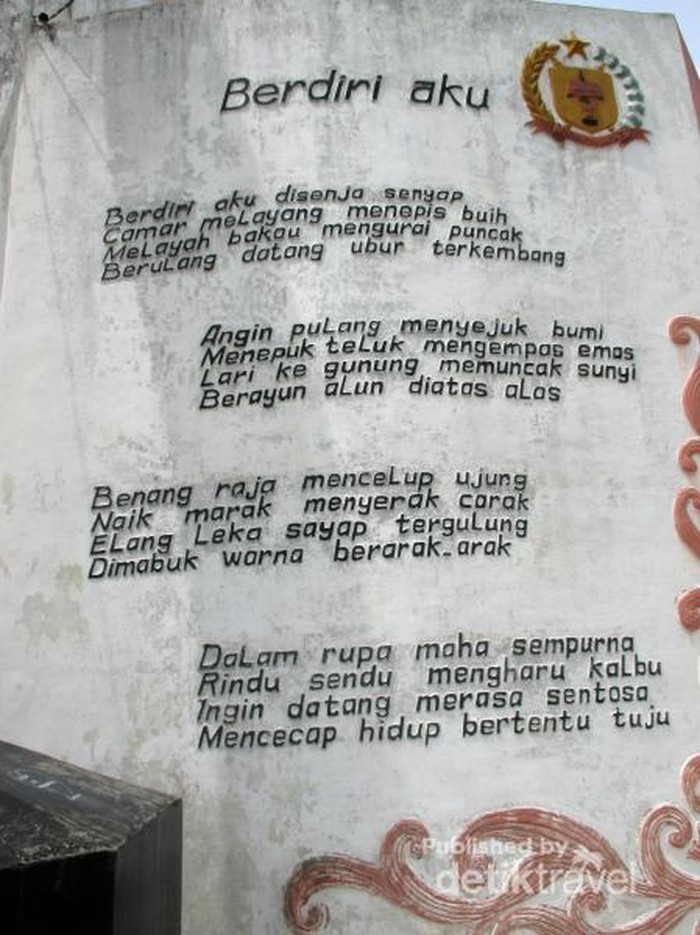 Berdiri aku
Berdiri aku disenja senyap
Camar meLayang menepis buih
MeLayah bakau mengurai puncak
BeruLang datang ubur terkembang
Angin puLang menyejuk bumi
Menepuk teLuk mengempas emas
Lari ke gunung memuncak sunyi
Berayun aLun diatas aLas
Benang raja menceLup ujung
Naik marak menyerak corak
ELang Leka sayap terguLung
Dimabuk warna berarak-arak
DaLam rupa maha sempurna
Rindu sendu mengharu kaLbu
Ingin datang merasa sentosa
Mencecap hidup bertentu tuju
Published by
detiktravel